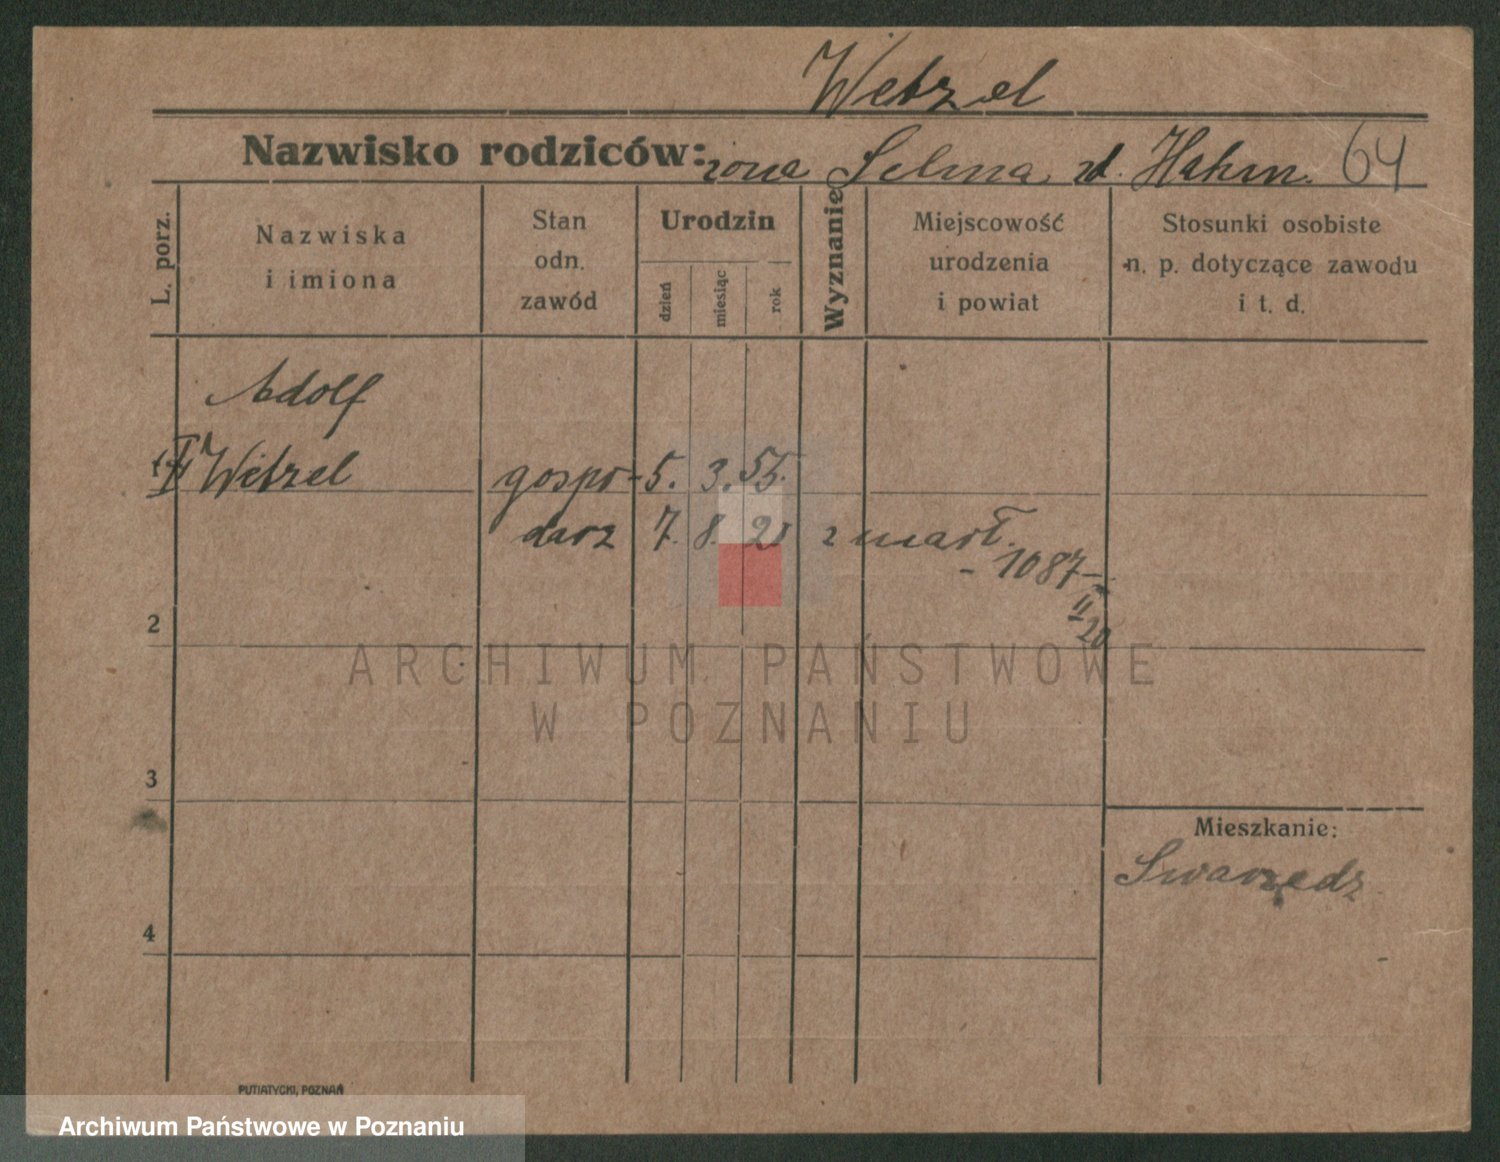 Wetzel
Nazwisko rodziców: żona Selma zd. Hahn. 64
L. porz.
Nazwiska
i imiona
Stan
odn.
zawód
Urodzin
dzień
miesiąc
rok
Wyznanie
Miejscowość
urodzenia
i powiat
Stosunki osobiste
n. p. dotyczące zawodu
i t. d.
Adolf
Wetzel gospo- 5. 3. 55.
darz 7. 8. 21 zmarł.
- 1087 -
II
20
2
3
4
Mieszkanie:
Swarzędz
ARCHIWUM PAŃSTWOWE
W POZNANIU
PUTIATYCKI, POZNAŃ
Archiwum Państwowe w Poznaniu